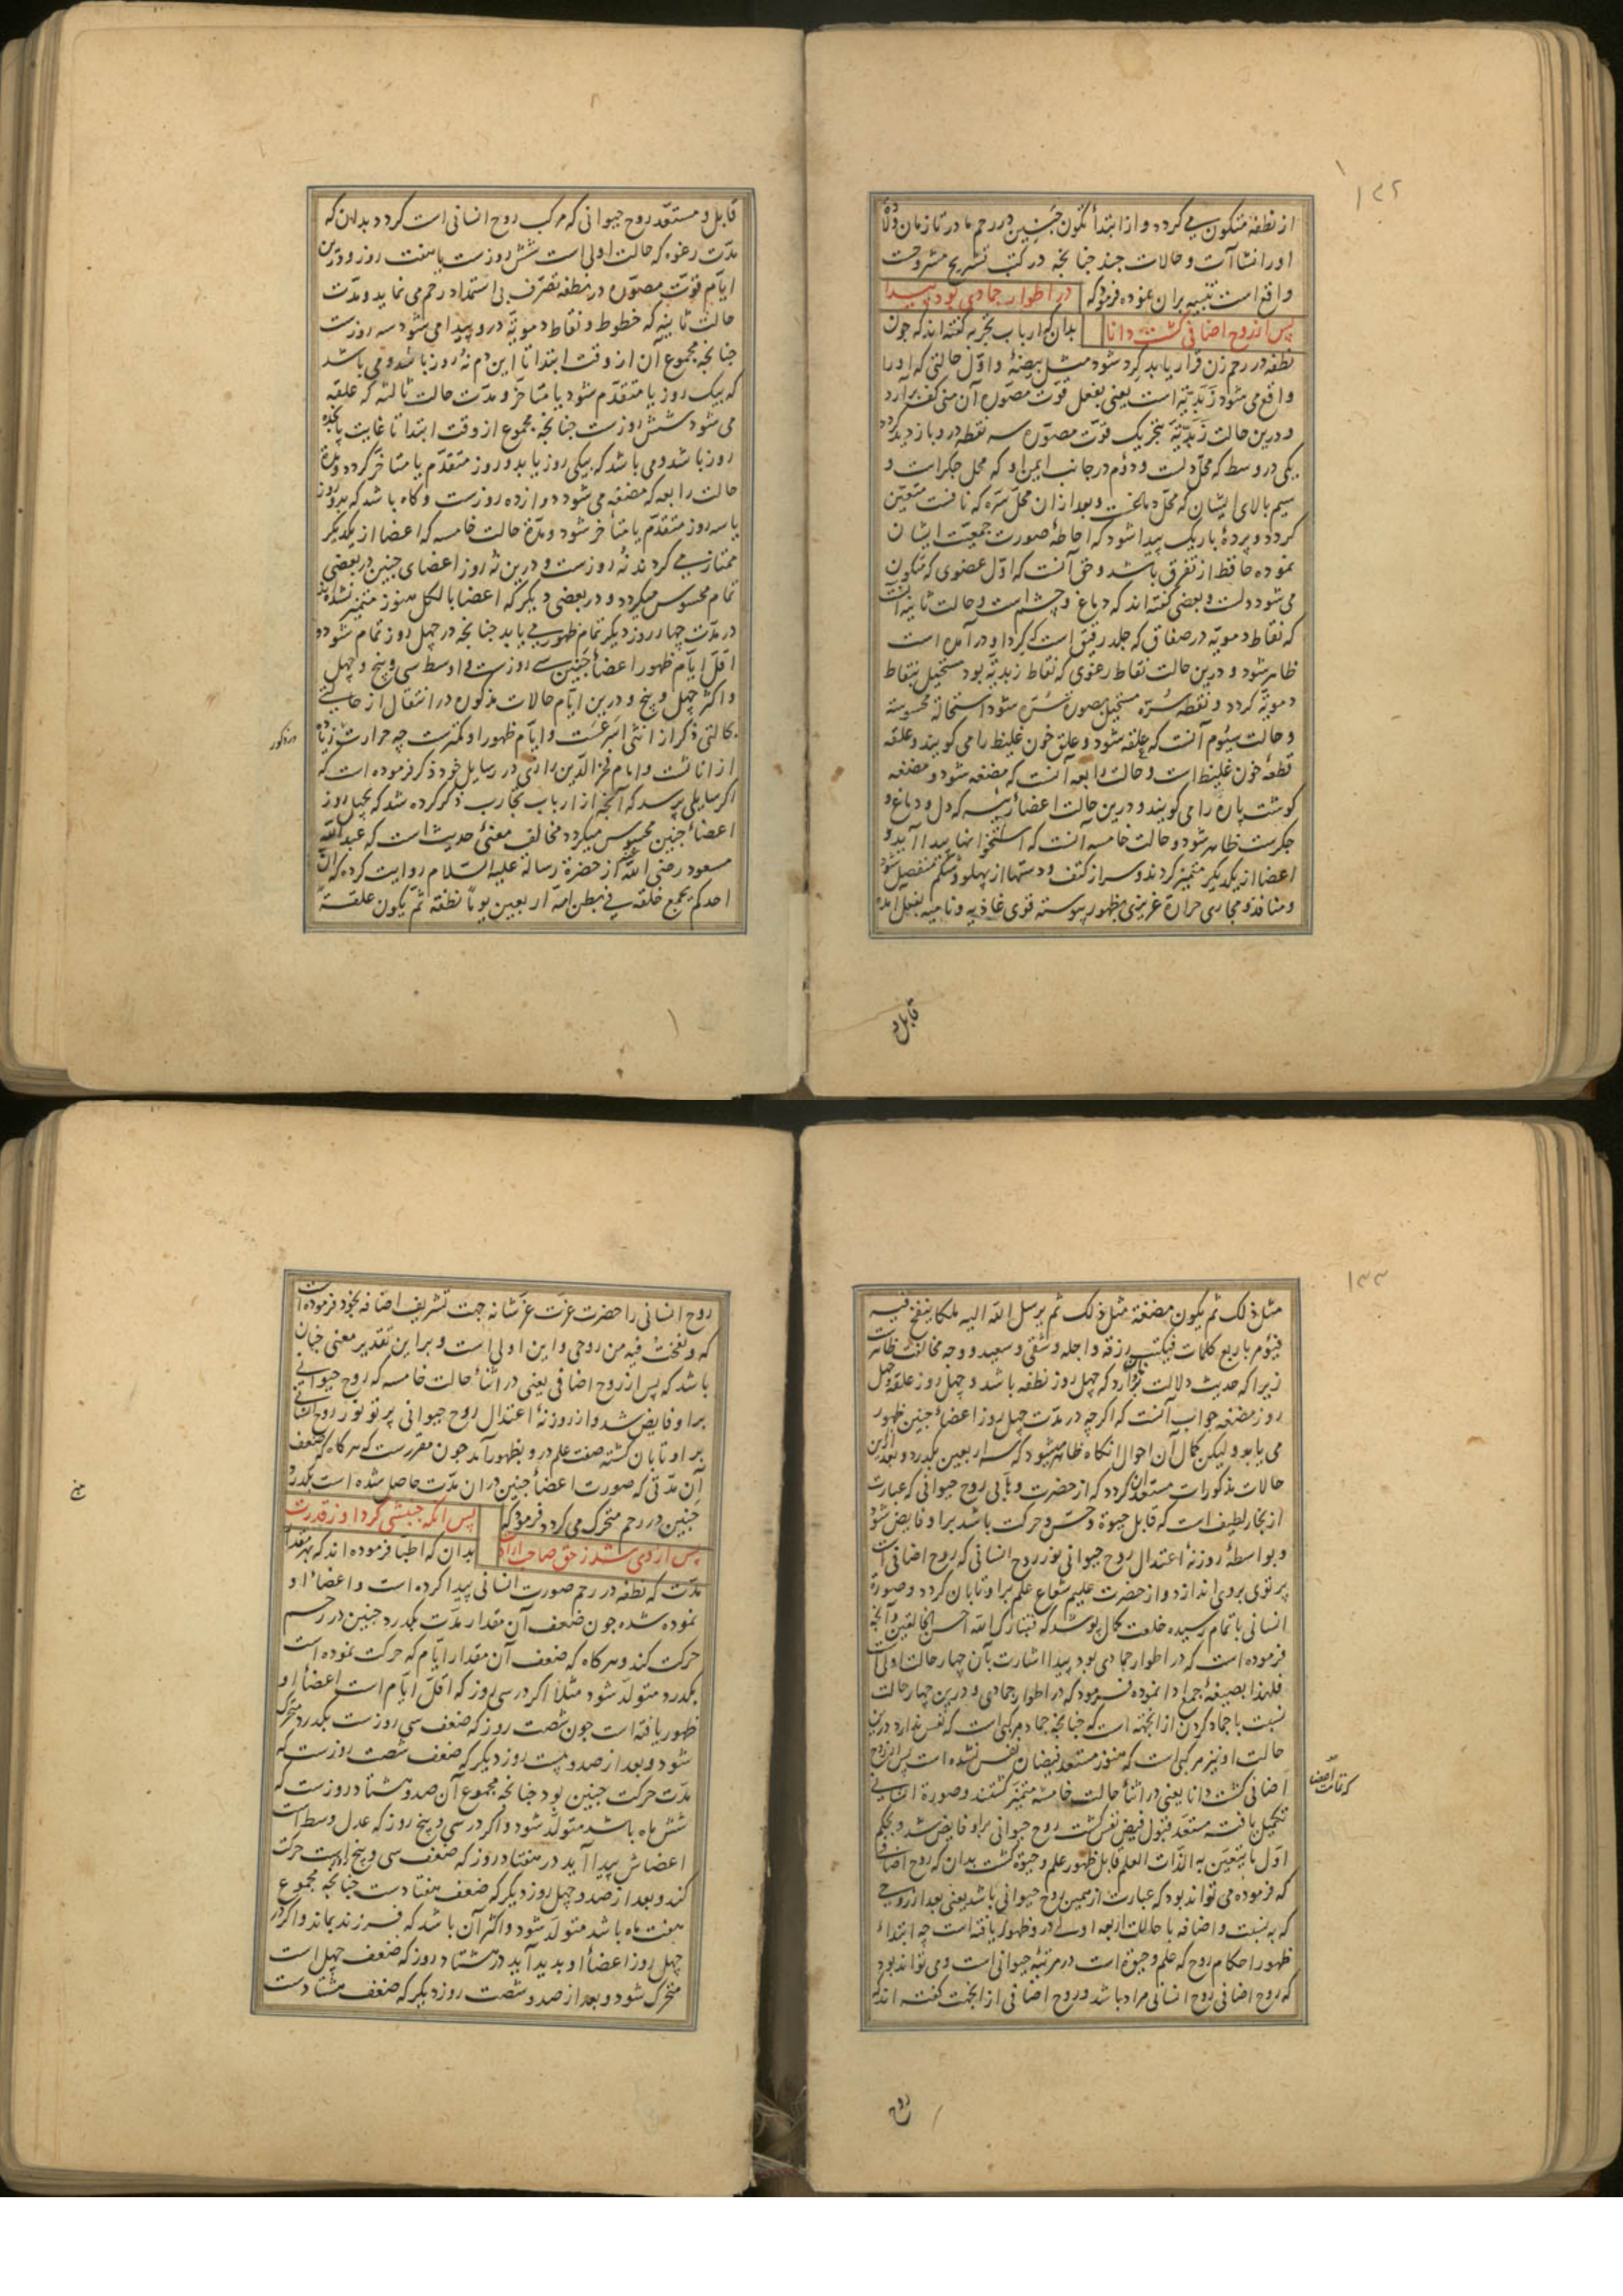 ۱۳۲
از نطفه متکون می کردد و از ابتدأ تکون جنین در رحم مادر تا زمان ولادة
او را نشاآت و حالات چند چنانچه در کتب تشریح مشروحست
واقع است تنبیه بران نموده فرمود که در اطوار جمادی بود پیدا
پس از روح اضافی کشت دانا بدان که ارباب تجربه کفته اند که چون
نطفه در رحم زن قرار یابد کرد شود مثل بیضهٔ و اول حالتی که او را
واقع می شود زبدیّه است یعنی بفعل قوّت مصوّره آن منی کف برآرد
و درین حالت زبدیّه بتحریک قوّت مصوّره سه نقطه درو باز دید کردد
یکی در وسط که محلّ دلست و دوم در جانب ایمن او که محل جکر است و
سیم بالای ایشان که محلّ دماغست و بعد از ان محلّ سرّه که نافست متعیّن
کردد و پردهٔ باریک پیدا شود که احاطهٔ صورت جمعیّت ایشان
نموده حافظ از تفرق باشد و حق آنست که اوّل عضوی که متکون
می شود دلست و بعضی کفته اند که دماغ و چشم است و حالت ثانیه آنست
که نقاط دمویّه در صفاق که جلد رقیق است که کرد او در آمده است
ظاهر شود و درین حالت نقاط رغوی که نقاط زبدیّه بود مستحیل بنقاط
دمویّه کردد و نقطه سرّه مستحیل بصورة سرّه شود استحالهٔ محسوسه
و حالت سیّوم آنست که علقه شود و علق خون غلیظ را می کویند و علقه
قطعهٔ خون غلیظ است و حالت رابعه آنست که مضغه شود و مضغه
کوشت پاره را می کویند و درین حالت اعضاء رئیسه که دل و دماغ و
جکرست ظاهر شود و حالت خامسه آنست که استخوانها پیدا آید و
اعضا از یکدیکر متمیز کردند و سر از کتف و دستها از پهلو و شکم منفصل شود
و منافذ و مجاری حرارة غریزی بظهور پیوسته قوی غاذیه و نامیه بفعل آمده
قابل و
قابل و مستعد روح حیوانی که مرکب روح انسانی است کردد بدان که
مدّت رغوه که حالت اولی است شش روزست یا هفت روز و درین
ایّام قوّت مصوّره در نطفه تصرّف بی استمداد رحم می نماید و مدّت
حالت ثانیه که خطوط و نقاط دمویّه درو پیدا می شود سه روزست
چنانچه مجموع آن از وقت ابتدا تا این دم نهٔ روز باشد و می باشد
که بیک روز یا متقدّم شود یا متأخر و مدّت حالت ثالثه که علقه
می شود شش روزست چنانچه مجموع از وقت ابتدا تا غایت پانجده
روز باشد و می باشد که بیکی روز یا بدو روز متقدّم یا متاخّر کردد و مدّة
حالت رابعه که مضغه می شود دوازده روزست و کاه باشد که بدو روز
یا سه روز متقدّم یا متأخر شود و مدّة حالت خامسه که اعضا از یکدیکر
ممتاز می کردند نهٔ روزست و درین نه روز اعضای جنین در بعضی
تمام محسوس میکردد و در بعضی دیکر که اعضا بالکل هنوز متمیز نشده اند
در مدّت چهار روز دیکر تمام ظهور می یابد چنانچه در چهل روز تمام شود و
اقلّ ایّام ظهور اعضاء جنین سی روزست و اوسط سی و پنج و چهل
و اکثر چهل و پنج و درین ایّام حالات مذکوره در انتقال از حالتی
بحالتی ذکر از انثی اسرعست و ایّام ظهور او کمترست چه حرارتش زیاده
مذکور
از اناثست و امام فخر الدّین رازی در رسایل خود ذکر فرموده است که
اکر سایلی پرسد که آنچه از ارباب تجارب ذکر کرده شد که بچهل روز
اعضاء جنین محسوس میکردد مخالف معنیٔ حدیث است که عبد الله
مسعود رضی الله از حضرة رسالة علیه السّلام روایت کرده که انّ
احدکم یجمع خلقه فی بطن امّه اربعین یوماً نطفة ثمّ یکون علقةً
۱۳۳
مثل ذلک ثم یکون مضغة مثل ذلک ثم یرسل الله الیه ملکا ینفخ فیه
فیؤمر باربع کلمات فیکتب رزقه و اجله و شقی و سعید و وجه مخالفت ظاهرست
زیرا که حدیث دلالت بران دارد که چهل روز نطفه باشد و چهل روز علقه و چهل
روز مضغه جواب آنست که اکرچه در مدّت چهل روز اعضاء جنین ظهور
می یابد و لیکن کمال آن احوال انکاه ظاهر میشود که سه اربعین بکذرد و بعد ازین
حالات مذکورات مستعد ان کردد که از حضرت وهّابی روح حیوانی که عبارت
از بخار لطیف است که قابل حیوة و حسّ و حرکت باشد بر او فایض شود
و بواسطهٔ روزنهٔ اعتدال روح حیوانی نور روح انسانی که روح اضافی است
پرتوی بر وی اندازد و از حضرت علیم شعاع علم بر او تابان کردد و صورة
انسانی باتمام رسیده خلعت کمال پوشد که فتبارک الله احسن الخالقین و آنچه
فرموده است که در اطوار جمادی بود پیدا اشارت بآن چهار حالت اولی است
فلهذا بصیغهٔ جمع ادا نموده فرمود که در اطوار جمادی و درین چهار حالت
نسبت با جماد کردن از انجهته است که چنانچه جماد مرکبی است که نفس ندارد درین
حالت او نیز مرکبی است که هنوز مستعد فیضان نفس نشده است پس از روح
اضافی کشت دانا یعنی در اثناء حالت خامسه متمیّز کشتند و صورة انسانی
که تمامت اعضا
تکمیل یافته مستعد قبول فیض نفس کشت روح حیوانی بر او فایض شد و بحکم
اوّل ما یتعیّن به الذّات العلم قابل ظهور علم و حیوة کشت بدان که روح اضافی
که فرموده می تواند بود که عبارت از همین روح حیوانی باشد یعنی بعد از روحی
که به نسبت و اضافه با حالات اربعه اولی درو ظهور یافته است چه ابتداء
ظهور احکام روح که علم و حیوة است در مرتبهٔ حیوانی است و می تواند بود
که روح اضافی روح انسانی مراد باشد و روح اضافی از انجهت کفته اند که
روح
روح انسانی را حضرت عزّت عزّ شانه جهت تشریف اضافه بخود فرموده است
که و نفخت فیه من روحی و این اولی است و بر این تقدیر معنی چنان
باشد که پس از روح اضافی یعنی در اثناء حالت خامسه که روح حیوانی
بر او فایض شد و از روزنهٔ اعتدال روح حیوانی پرتو نور روح انسانی
بر او تابان کشته صفت علم درو بظهور آمد چون مقررست که هر کاه که ضعف
آن مدّتی که صورت اعضاء جنین در ان مدّت حاصل شده است بکذرد
جنین در رحم متحرک می کردد فرمود که پس آنکه جنبشی کرد او ز قدرت
پس از وی شد ز حق صاحب ارادت بدان که اطبا فرموده اند که بهر مقدار
مدّت که نطفه در رحم صورت انسانی پیدا کرده است و اعضاء او
نموده شده چون ضعف آن مقدار مدّت بکذرد جنین در رحم
حرکت کند و هر کاه که ضعف آن مقدار ایّام که حرکت نموده است
بکذرد متولّد شود مثلا اکر در سی روز که اقلّ ایّام است اعضاء او
ظهور یافته است چون شصت روز که ضعف سی روزست بکذرد متحرک
شود و بعد از صد و بیست روز دیکر که ضعف شصت روزست که
مدّت حرکت جنین بود چنانچه مجموع آن صد و هشتاد روزست که
شش ماه باشد متولّد شود و اکر در سی و پنج روز که عدل وسط است
اعضاش پیدا آید در هفتاد روز که ضعف سی و پنج است حرکت
کند و بعد از صد و چهل روز دیکر که ضعف هفتادست چنانچه مجموع
هفت ماه باشد متولّد شود و اکثر آن باشد که فرزند بماند و اکر در
چهل روز اعضاء او بدید آید در هشتاد روز که ضعف چهل است
متحرک شود و بعد از صد و شصت روز دیکر که ضعف هشتادست